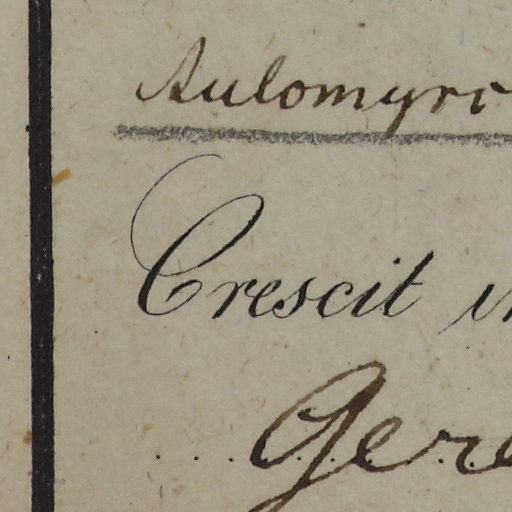 Aulomyrc
Crescit in
Gere